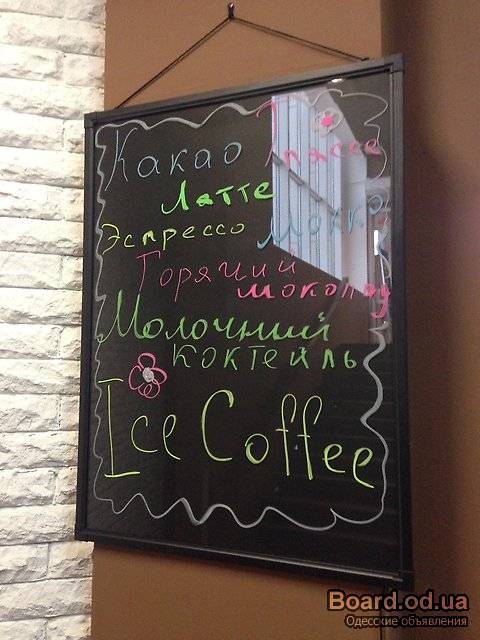 Какао Гляссе
Латте
Эспрессо Мокко
Горячий
шоколад
Молочний
коктейль
Ice Coffee
Board.od.ua
Одесские объявления